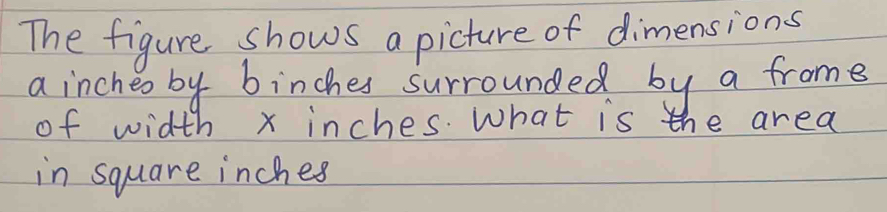 The figure shows a picture of dimensions
a inches by b inches surrounded by a frame
of width x inches. What is the area
in square inches